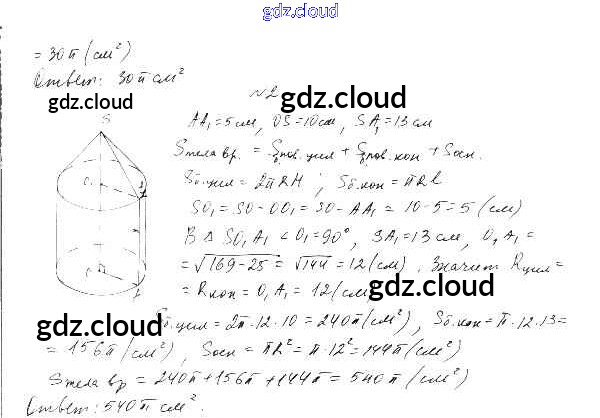 gdz.cloud
= 30π (см²)
Ответ: 30π см²
gdz.cloud
№2
gdz.cloud
S
AA₁ = 5 см, OS = 10 см, SA₁ = 13 см
Sтела вр. = Sбпов. цил + Sбпов. кон + Sосн.
Sб.цил = 2πRH ; Sб.кон = πRl
SO₁ = SO - OO₁ = SO - AA₁ = 10 - 5 = 5 (см)
В Δ SO₁A₁ ∠O₁ = 90°, SA₁ = 13 см, O₁A₁ =
= √169-25 = √144 = 12 (см). Значит Rцил =
= Rкон = O₁A₁ = 12 (см
gdz.cloud
gdz.cloud
б.цил = 2π·12·10 = 240π (см²), Sб.кон = π·12·13 =
= 156π (см²), Sосн = πR² = π·12² = 144π (см²)
gdz.cloud
Sтела вр = 240π + 156π + 144π = 540π (см²)
Ответ: 540π см².
gdz.cloud